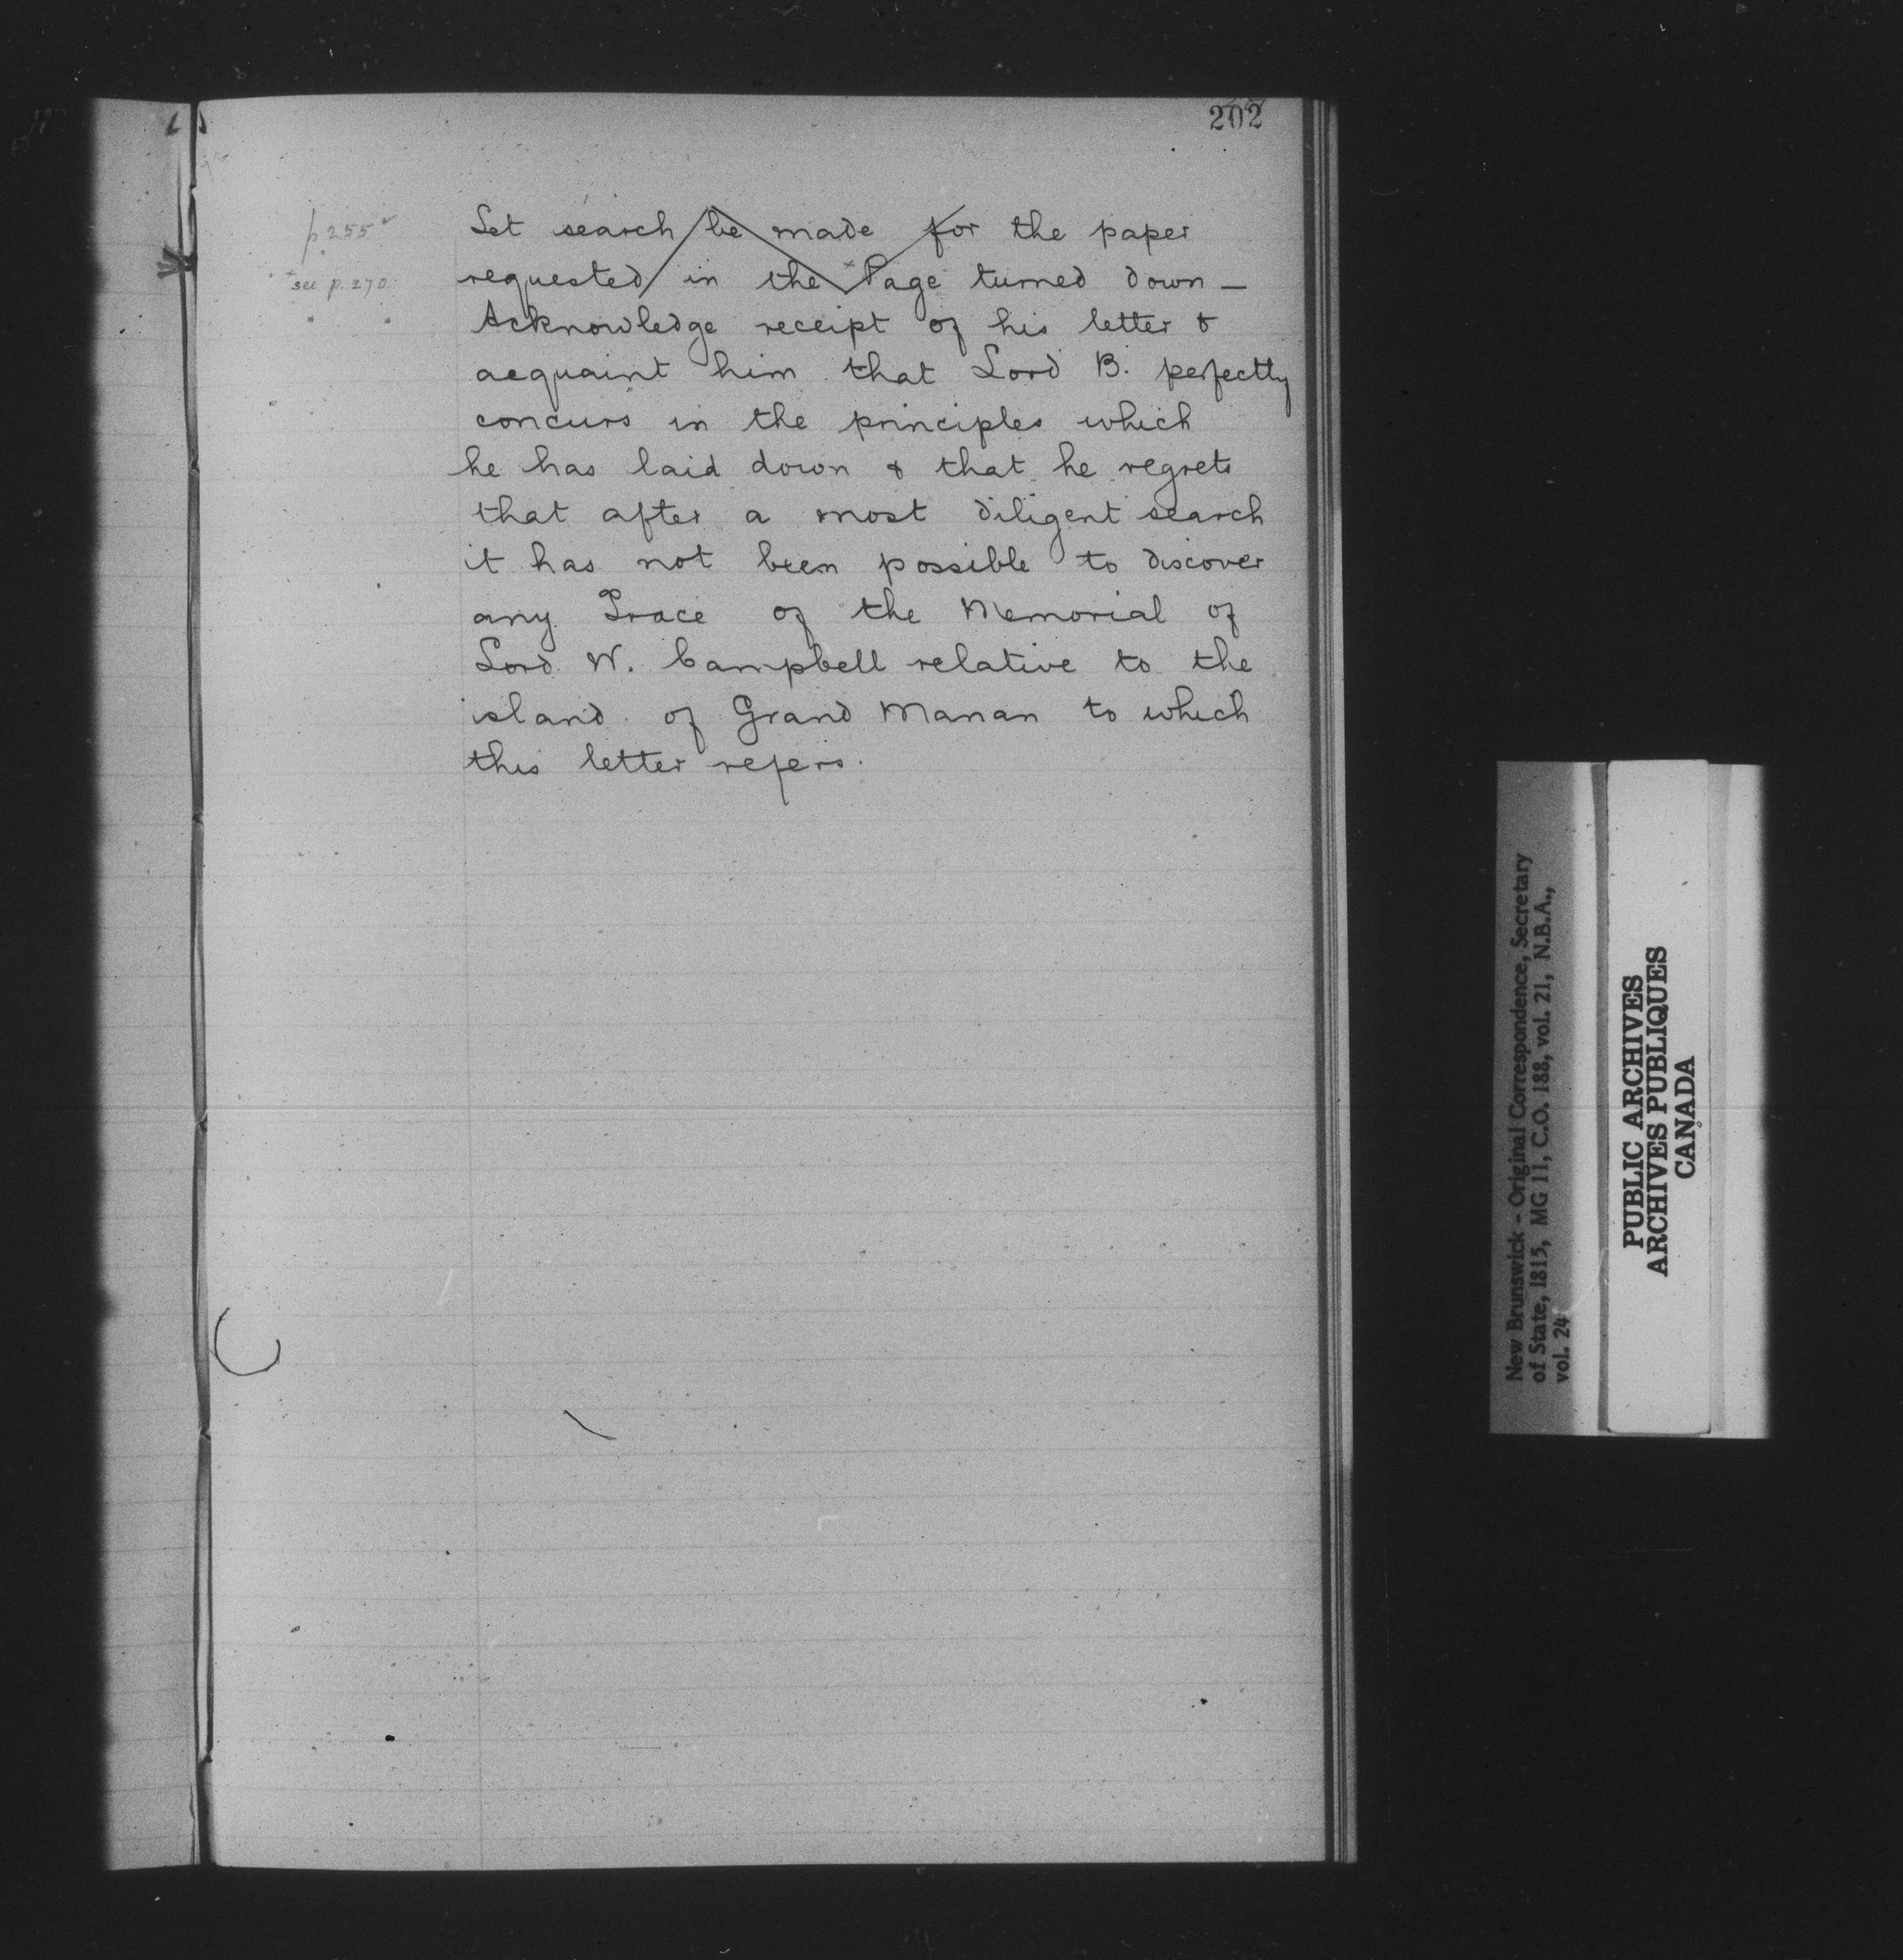 202
p 255
see p. 270
Let search be made for the paper
requested in the Page turned down —
Acknowledge receipt of his letter &
acquaint him that Lord B. perfectly
concurs in the principles which
he has laid down & that he regrets
that after a most diligent search
it has not been possible to discover
any Trace of the Memorial of
Lord W. Campbell relative to the
island of Grand Manan to which
this letter refers.
New Brunswick - Original Correspondence, Secretary
of State, 1815, MG 11, C.O. 188, vol. 21, N.B.A.,
vol. 24
PUBLIC ARCHIVES
ARCHIVES PUBLIQUES
CANADA